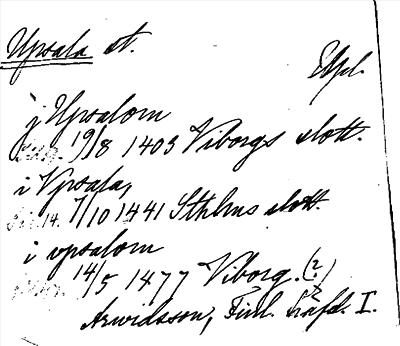 Upsala st.
Upl.
j Upsalom
19/8 1403 Viborgs slott.
i Vpsala,
14. 7/10 1441 Sthlms slott.
i vpsalom
14/5 1477 Viborg. (?)
Arwidsson, Finl. häfd. I.